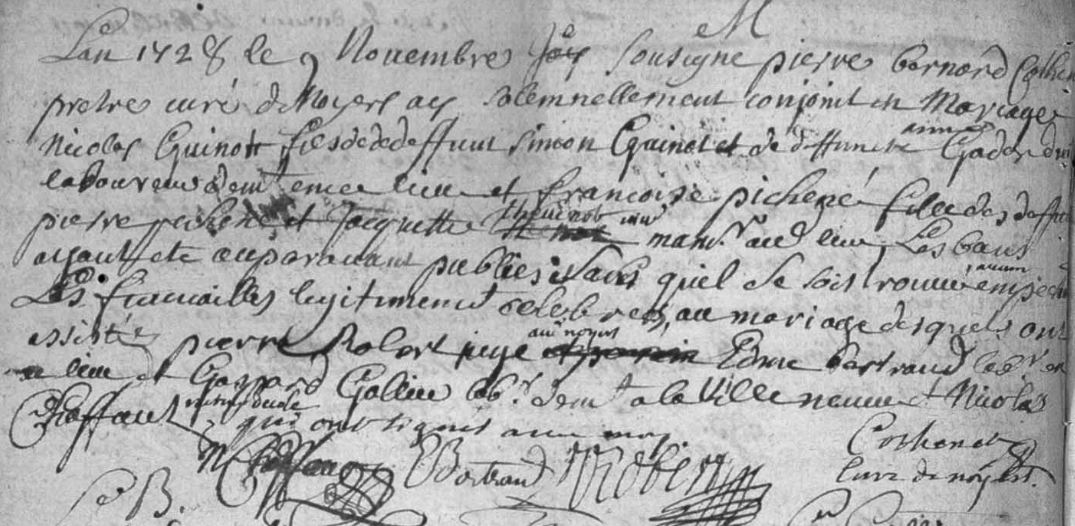 M
Lan 1728 le 9 Novembre Je sousigne pierre bernard
pretre curé de Noyers ay solemnellement conjoint en Mariage
Nicolas Guinot fils de deffunt simon Guinot et de deffuncte anne
laboureur demt en ce lieu et francoise pichené fille des deffunts
pierre pichené et Jacquette manvr aud lieu, Les bans
ayant ete auparavant publiés sans quil se soit trouvé aucun
Les fiancailles legitimement celebrees, au mariage desquels ont
assisté pierre Robert juge aud noyers Edme bertrand labr en
ce lieu et Gaspard labr demt a la Ville neuve et Nicolas
Chaffaut
qui ont signés avec moy.
Bertrand Robert
curé de noyers